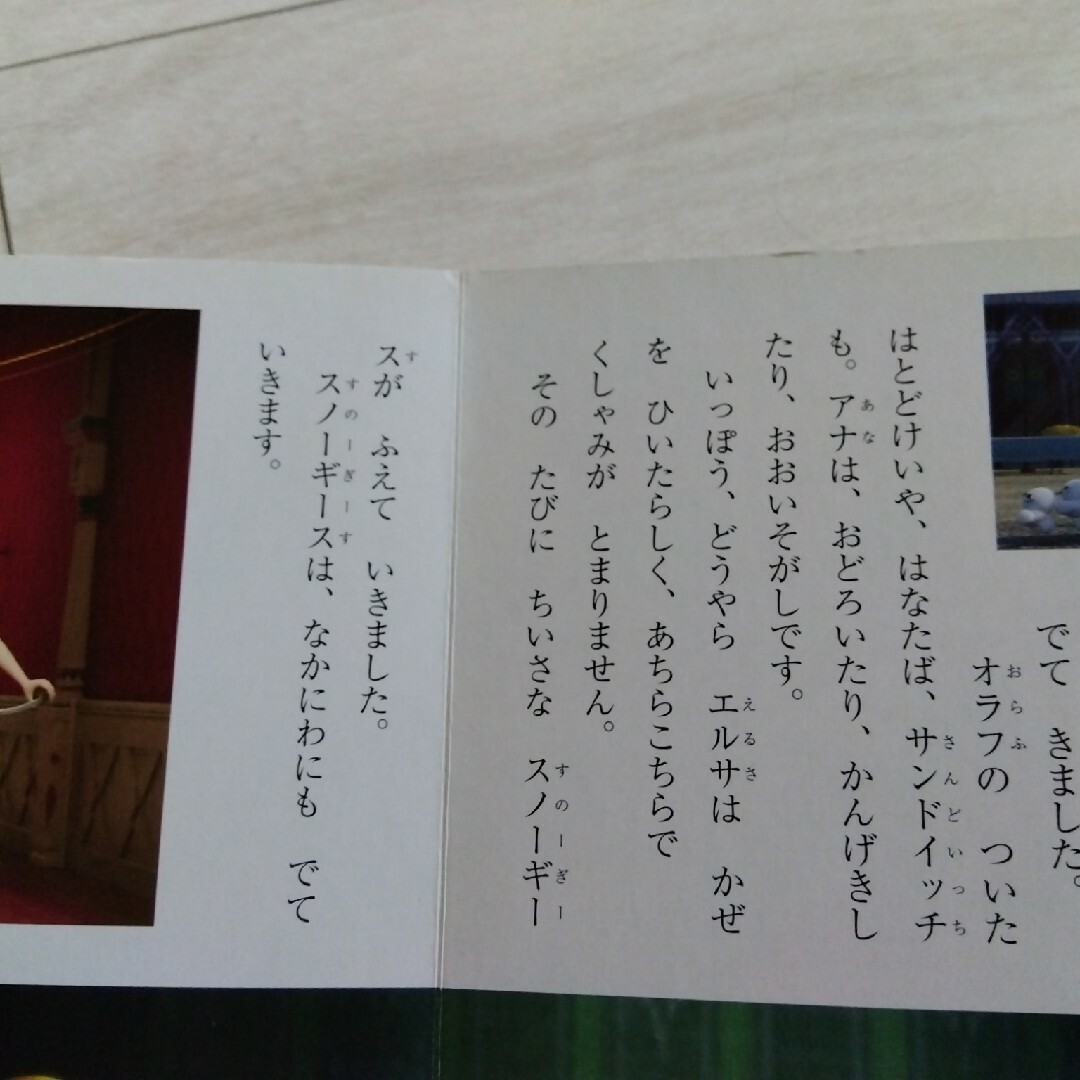 でて きました。
オラフの ついた
はとどけいや、はなたば、サンドイッチ
も。アナは、おどろいたり、かんげきし
たり、おおいそがしです。
いっぽう、どうやら エルサは かぜ
を ひいたらしく、あちらこちらで
くしゃみが とまりません。
その たびに ちいさな スノーギー
スが ふえて いきました。
スノーギースは、なかにわにも でて
いきます。